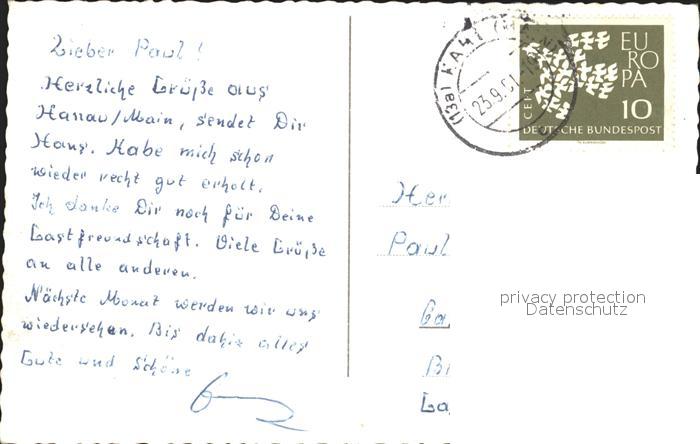 Lieber Paul!
Herzliche Grüße aus
Hanau/Main, sendet Dir
Hans. Habe mich schon
wieder recht gut erholt.
Ich danke Dir noch für Deine
Gastfreundschaft. Viele Grüße
an alle anderen.
Nächste Monat werden wir uns
wiedersehen. Bis dahin alles
Gute und schöne
(13a) KAHL (MAIN)
23.9.61
EU
RO
PA
CEPT
10
DEUTSCHE BUNDESPOST
Her
Paul
Ga
Bi
La
privacy protection
Datenschutz